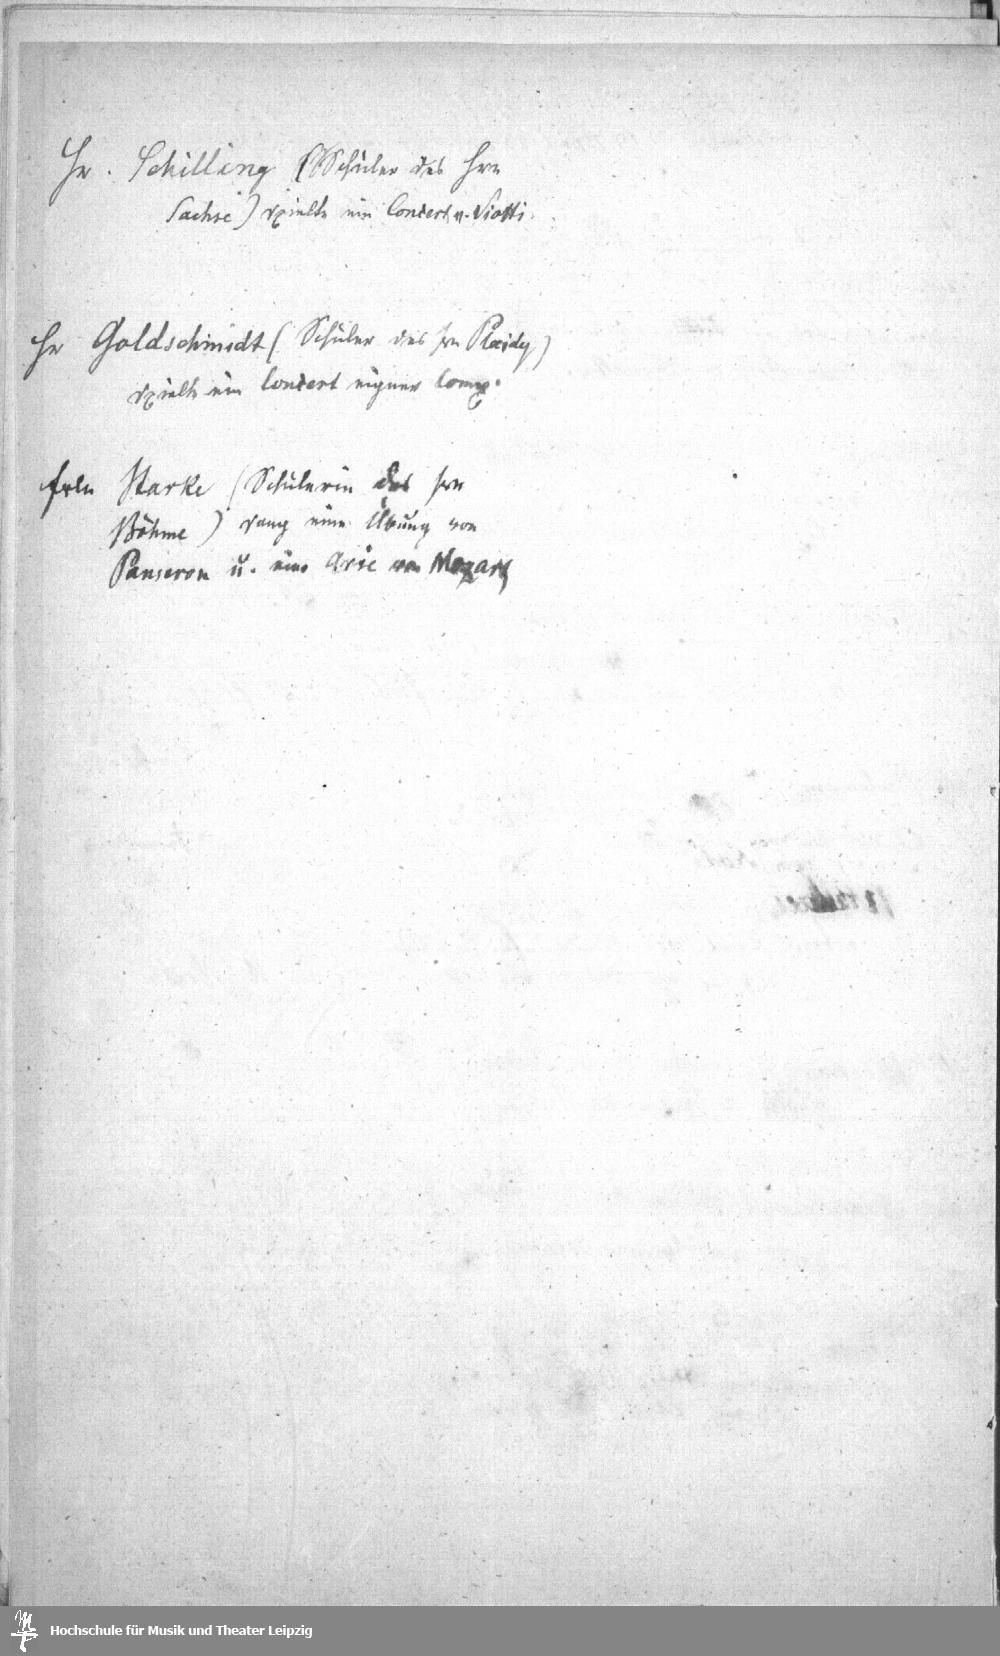 Hr. Schilling (Schüler des Hrn
Sachse) spielte ein Concert v. Viotti.
Hr Goldschmidt (Schüler des Hrn Plaidy)
spielte ein Concert eigner Comp.
Frln Starke (Schülerin des Hrn
Böhme) sang eine Übung von
Panseron u. eine Arie von Mozart
Hochschule für Musik und Theater Leipzig